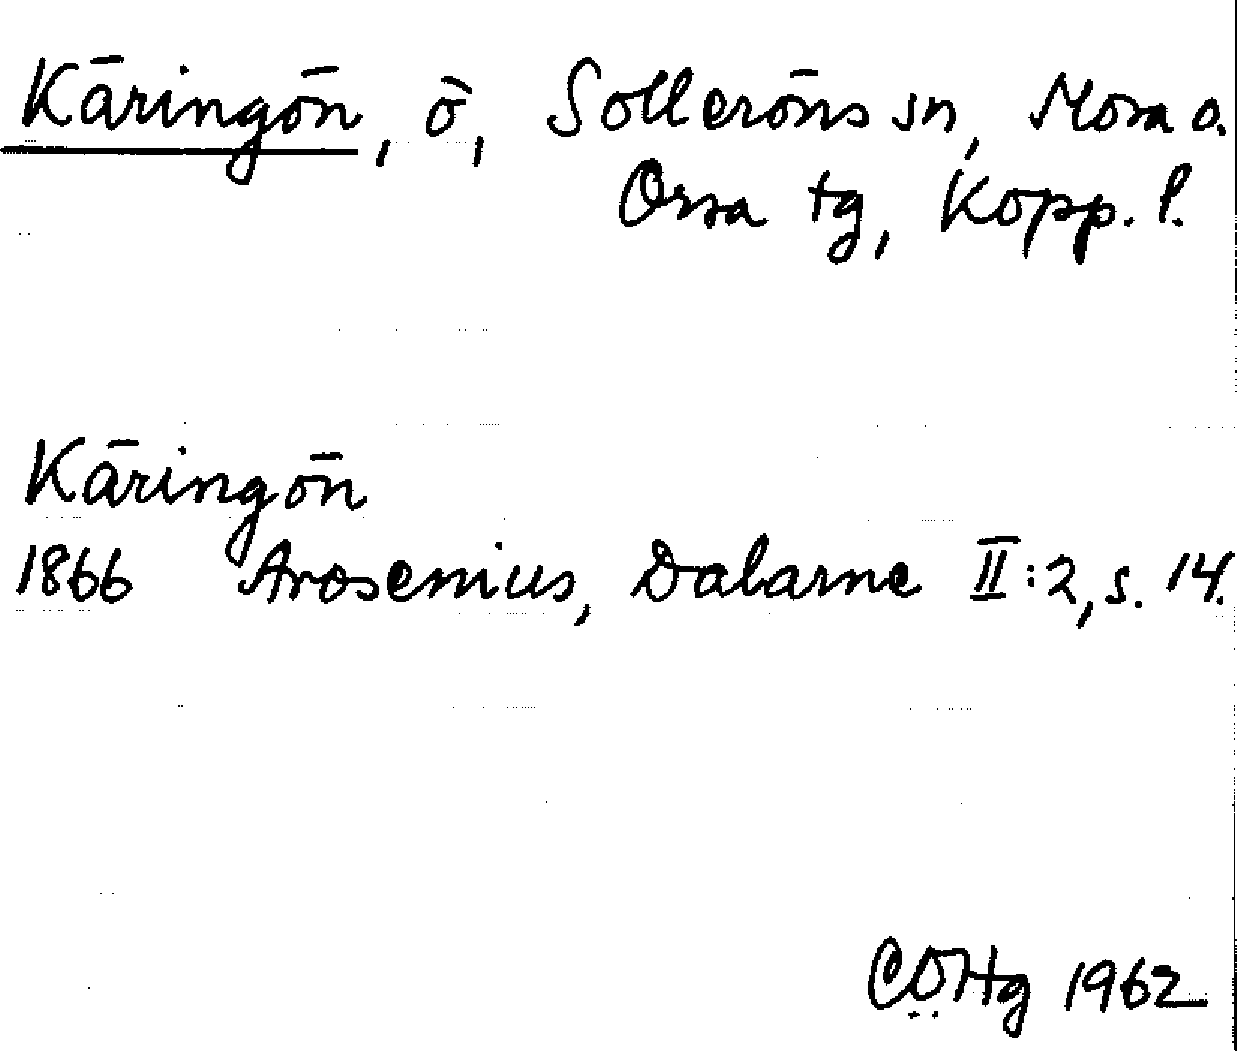 Käringön, ö, Solleröns sn, Mora o.
Orsa tg, Kopp. l.
Käringön
1866 Arosenius, Dalarne II:2, s. 14.
CÖHg 1962